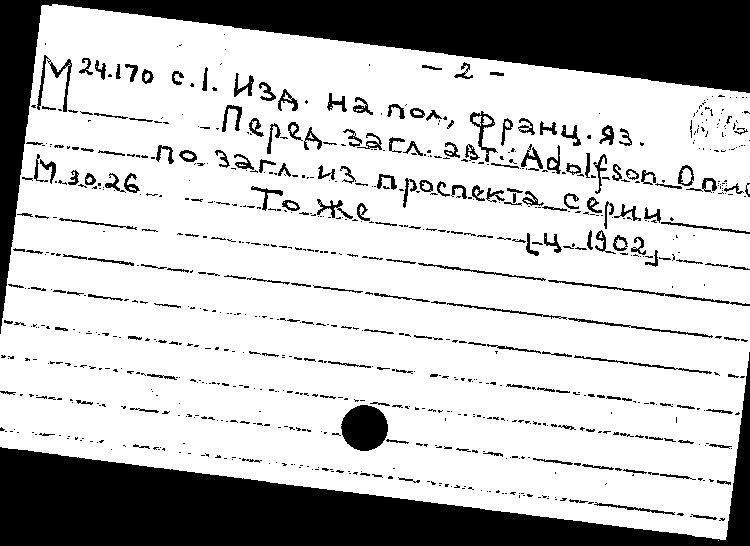 — 2 —
М 24.170 с.1. Изд. на пол., франц. яз.
Перед загл. авт.: Adolfson. Опис
по загл. из проспекта серии.
М 30.26
То же [ц. 1902]